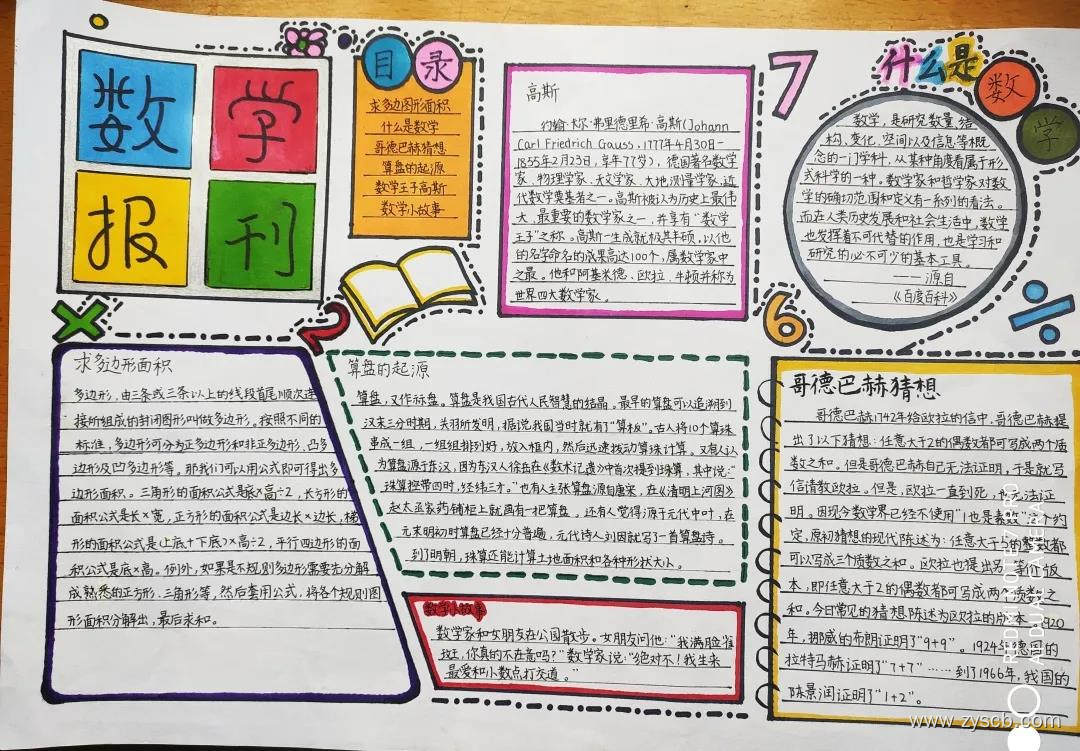 数学
报刊
目录
求多边图形面积
什么是数学
哥德巴赫猜想
算盘的起源
数学王子高斯
数学小故事
高斯
约翰·卡尔·弗里德里希·高斯(Johann
Carl Friedrich Gauss,1777年4月30日-
1855年2月23日,享年77岁),德国著名数学
家、物理学家、天文学家、大地测量学家,近
代数学奠基者之一。高斯被认为历史上最伟
大、最重要的数学家之一,并享有“数学
王子”之称。高斯一生成就极其丰硕,以他
的名字命名的成果高达100个,属数学家中
之最。他和阿基米德、欧拉、牛顿并称为
世界四大数学家。
7
什么是
数
学
数学,是研究数量、结
构、变化、空间以及信息等概
念的一门学科,从某种角度看属于形
式科学的一种。数学家和哲学家对数
学的确切范围和定义有一系列的看法。
而在人类历史发展和社会生活中,数学
也发挥着不可代替的作用,也是学习和
研究的必不可少的基本工具。
——源自
《百度百科》
×
2
6
÷
求多边形面积
多边形,由三条或三条以上的线段首尾顺次连
接所组成的封闭图形叫做多边形。按照不同的
标准,多边形可分为正多边形和非正多边形、凸多
边形及凹多边形等。那我们可以用公式即可得出多
边形面积。三角形的面积公式是底×高÷2,长方形的
面积公式是长×宽,正方形的面积公式是边长×边长,梯
形的面积公式是(上底+下底)×高÷2,平行四边形的面
积公式是底×高。例外,如果是不规则多边形需要先分解
成熟悉的正方形、三角形等,然后套用公式,将各个规则图
形面积分解出,最后求和。
算盘的起源
算盘,又作祘盘。算盘是我国古代人民智慧的结晶。最早的算盘可以追溯到
汉末三分时期,关羽所发明,据说我国当时就有了“算板”。古人将10个算珠
串成一组,一组组排列好,放入框内,然后迅速拨动算珠计算。又有人认
为算盘源于东汉,因为东汉人徐岳在《数术记遗》中首次提到珠算,其中说:“
珠算控带四时,经纬三才。”也有人主张算盘源自唐宋,在《清明上河图》
赵太丞家药铺柜上就画有一把算盘。还有人觉得源于元代中叶,在
元末明初时算盘已经十分普遍,元代诗人刘因就写了一首算盘诗。
到了明朝,珠算还能计算土地面积和各种形状大小。
数学小故事
数学家和女朋友在公园散步。女朋友问他:“我满脸雀
斑,你真的不在意吗?”数学家说:“绝对不!我生来
最爱和小数点打交道。”
哥德巴赫猜想
哥德巴赫1742年给欧拉的信中,哥德巴赫提
出了以下猜想:任意大于2的偶数都可写成两个质
数之和。但是哥德巴赫自己无法证明,于是就写
信请教欧拉。但是,欧拉一直到死,也无法证
明。因现今数学界已经不使用“1也是素数”这个约
定,原初猜想的现代陈述为:任意大于5的整数都
可以写成三个质数之和。欧拉也提出另一等价版
本,即任意大于2的偶数都可写成两个质数之
和。今日常见的猜想陈述为欧拉的版本。1920
年,挪威的布朗证明了“9+9”。1924年,德国的
拉特马赫证明了“7+7”……到了1966年,我国的
陈景润证明了“1+2”。
AI DUAL CAMERA
www.zyscb.com